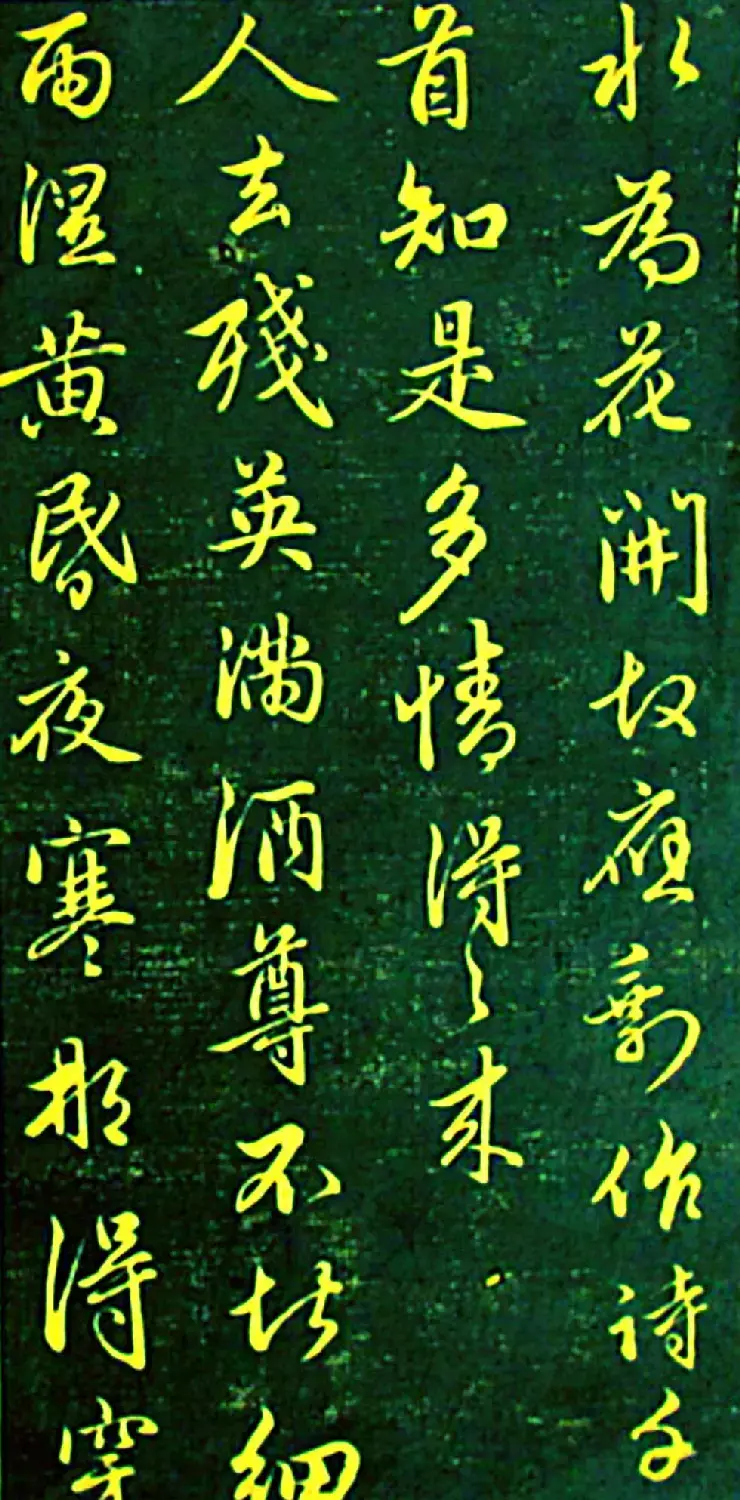 水為花開故應剩作詩千
首知是多情得〻來
人去殘英滿酒尊不堪細
雨濕黄昏夜寒那得穿